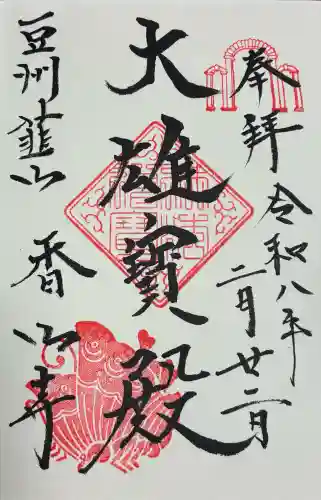 奉拝
令和八年
二月廿二日
大雄寶殿
豆州韮山
香山寺